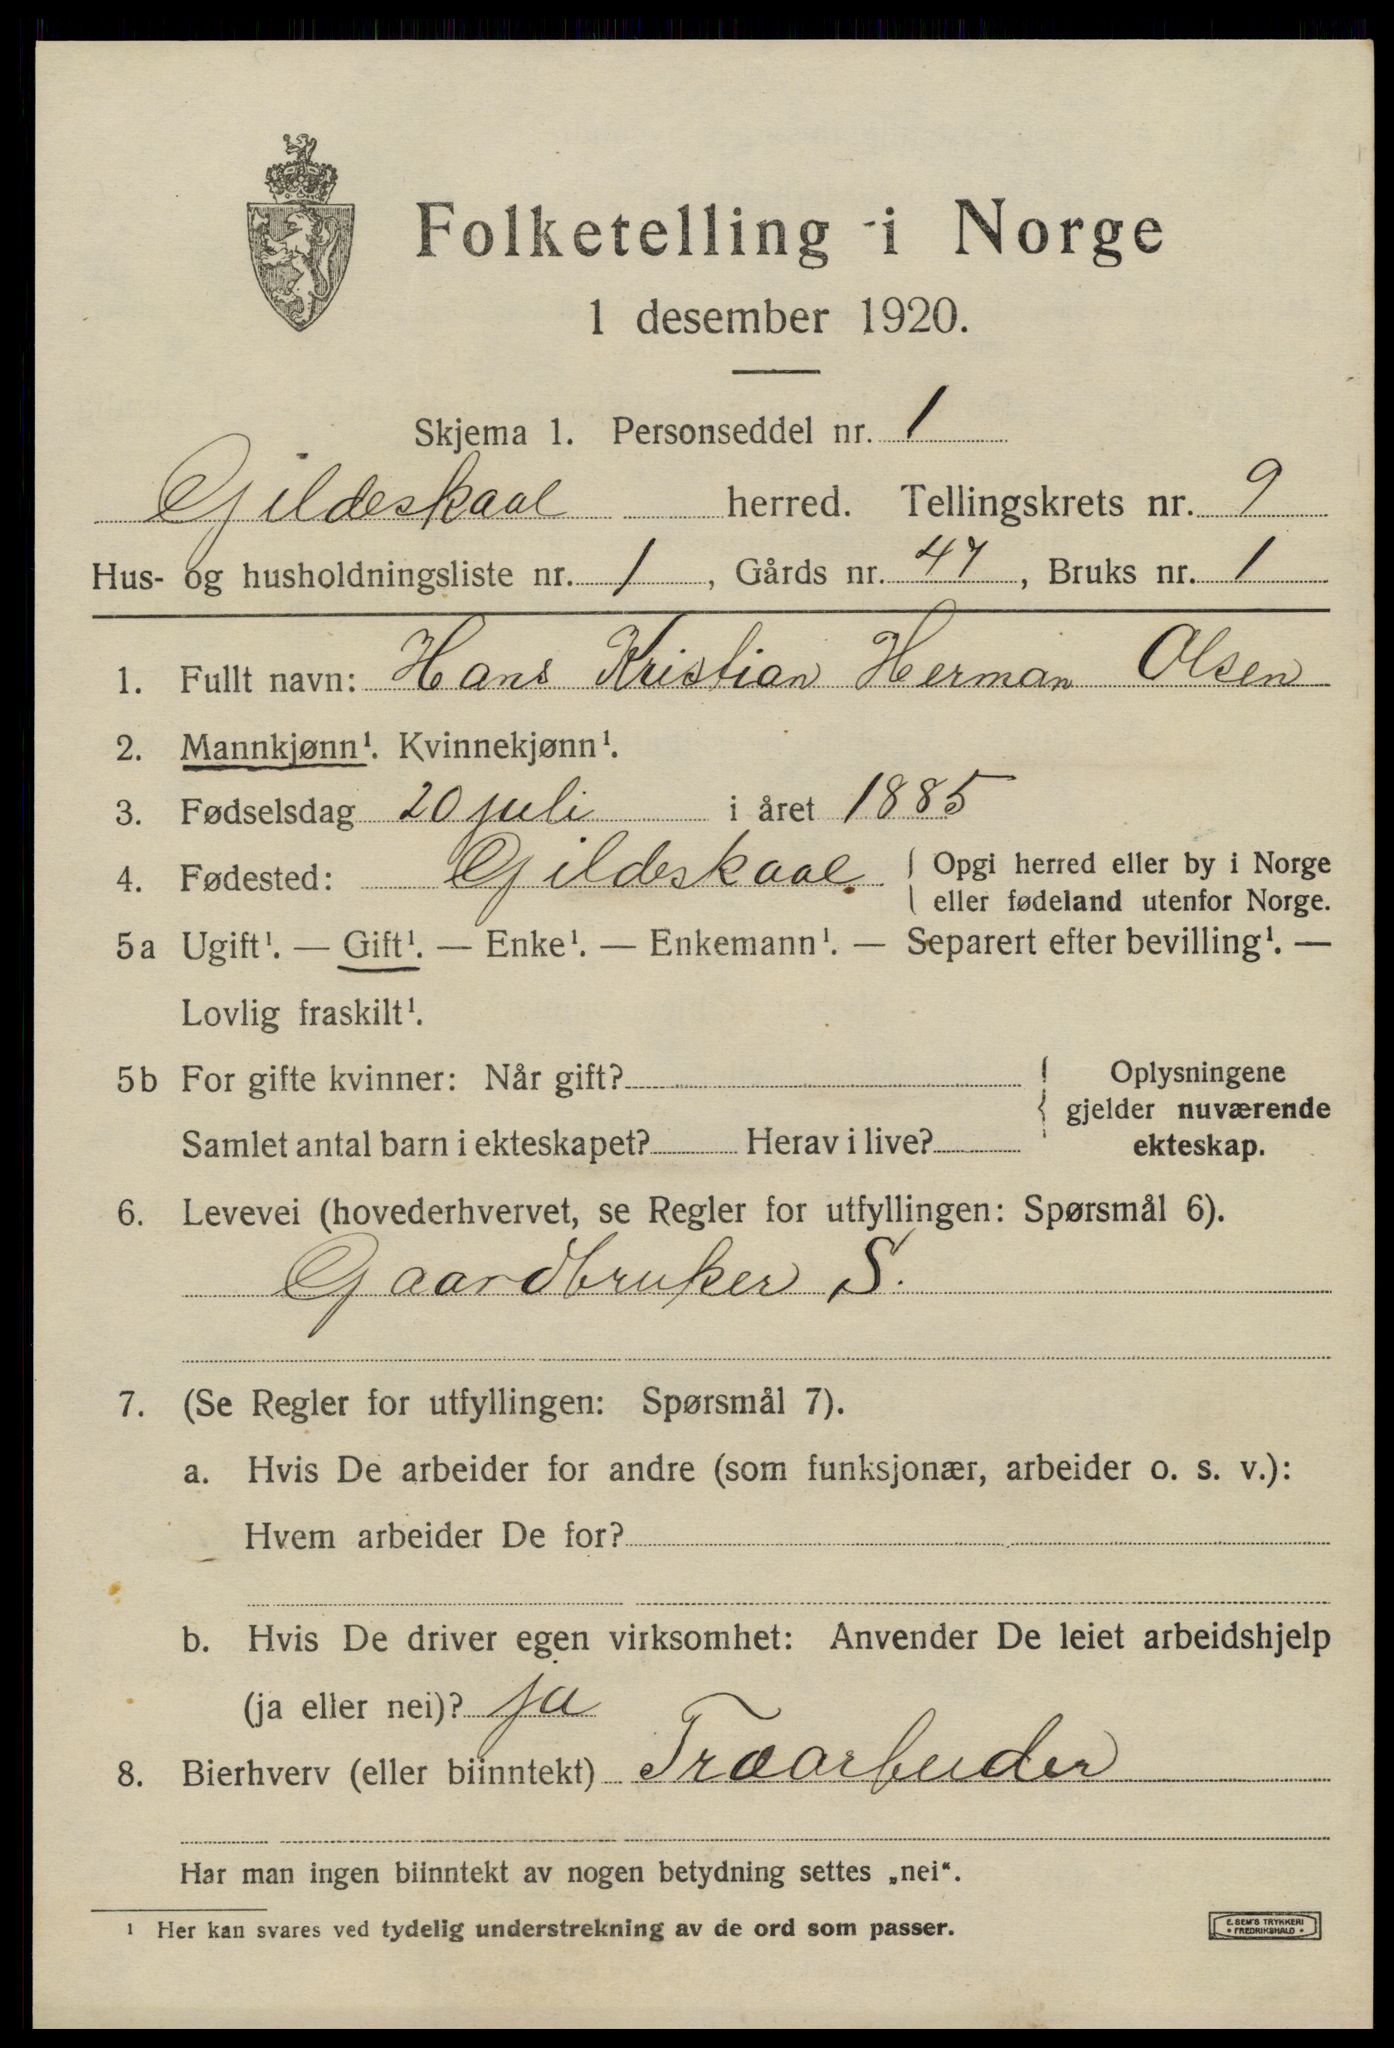 Folketelling i Norge
1 desember 1920.
Skjema 1. Personseddel nr. 1
Gildeskaal herred. Tellingskrets nr. 9
Hus- og husholdningsliste nr. 1, Gårds nr. 47, Bruks nr. 1
1. Fullt navn: Hans Kristian Herman Olsen
2. Mannkjønn¹. Kvinnekjønn¹.
3. Fødselsdag 20 juli i året 1885
4. Fødested: Gildeskaal. { Opgi herred eller by i Norge
eller fødeland utenfor Norge.
5a Ugift¹. — Gift¹. — Enke¹. — Enkemann¹. — Separert efter bevilling¹. —
Lovlig fraskilt¹.
5b For gifte kvinner: Når gift? { Oplysningene
gjelder nuværende
Samlet antal barn i ekteskapet? Herav i live? ekteskap.
6. Levevei (hovederhvervet, se Regler for utfyllingen: Spørsmål 6).
Gaardbruker S.
7. (Se Regler for utfyllingen: Spørsmål 7).
a. Hvis De arbeider for andre (som funksjonær, arbeider o. s. v.):
Hvem arbeider De for?
b. Hvis De driver egen virksomhet: Anvender De leiet arbeidshjelp
(ja eller nei)? ja
8. Bierhverv (eller biinntekt) Træarbeider
Har man ingen biinntekt av nogen betydning settes „nei“.
¹ Her kan svares ved tydelig understrekning av de ord som passer.
E. SEM'S TRYKKERI
• FREDRIKSHALD •